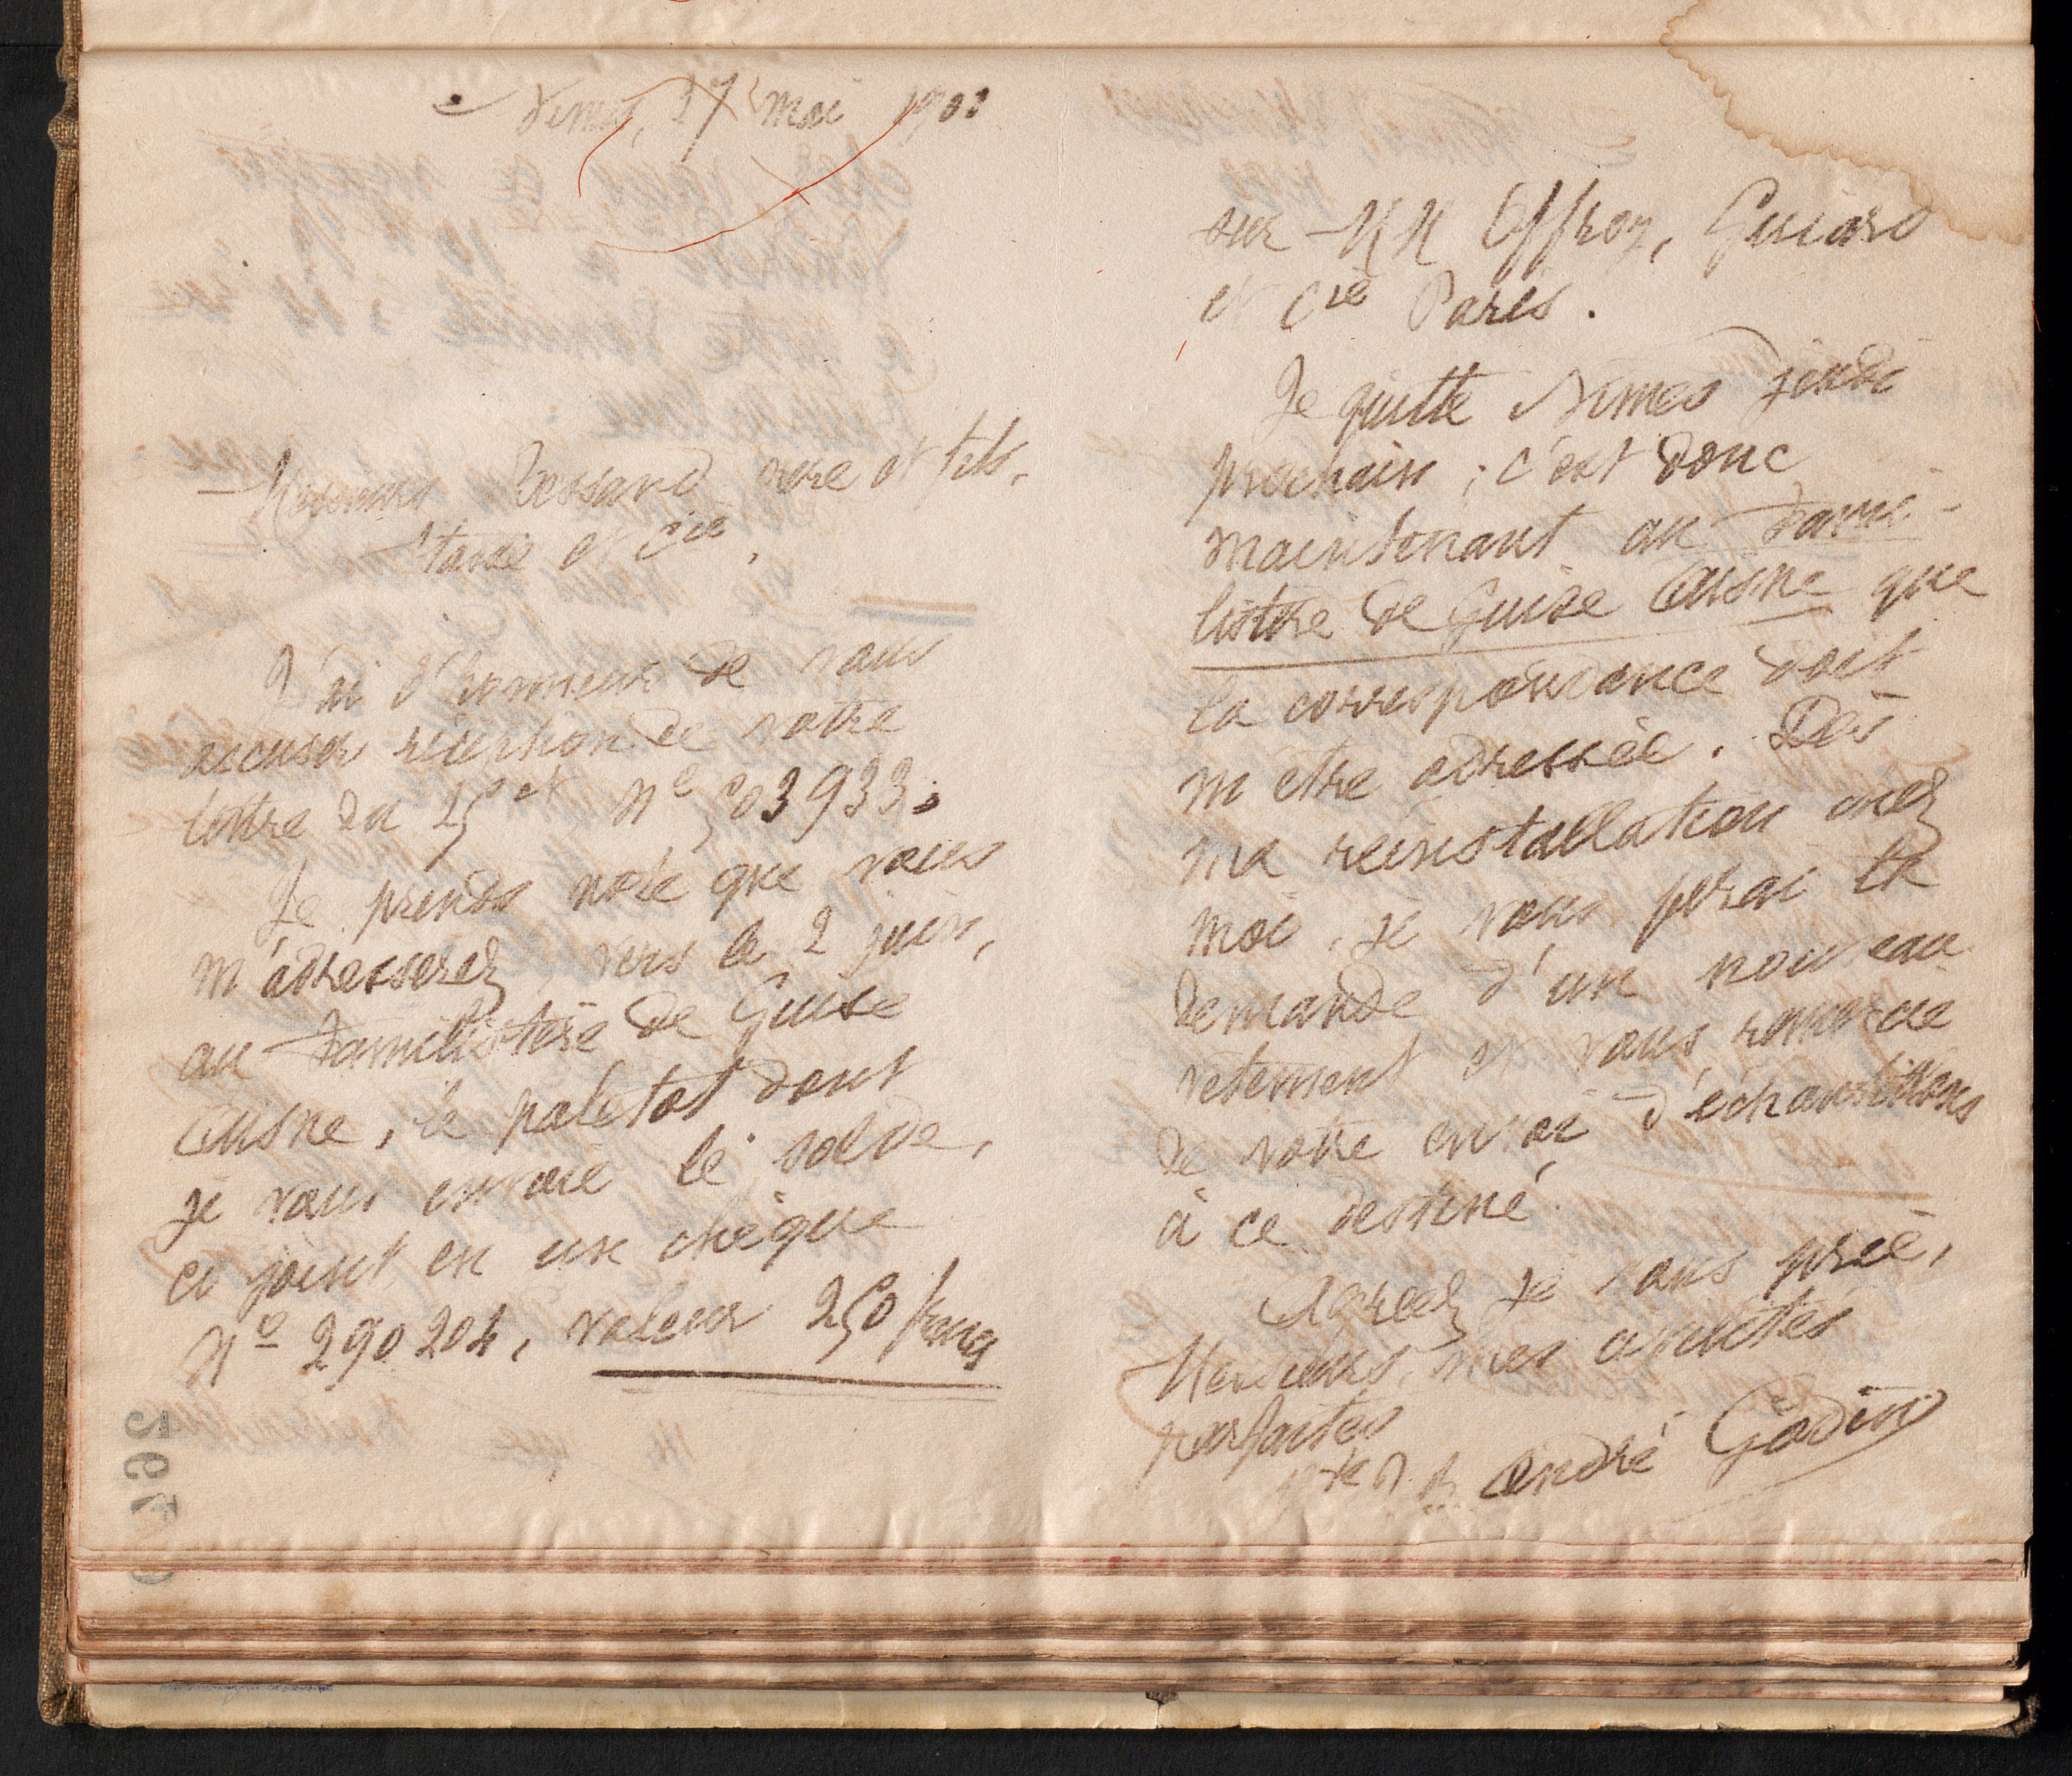 Nîmes, 27 mai 1901
Messieurs Bessand père et fils,
Stasse et Cie,
J'ai l'honneur de vous
accuser réception de votre
lettre du 25 ct, No 503933.
Je prends note que vous
m'adresserez, vers le 2 juin,
au Familistère de Guise
Aisne, le paletot dont
je vous envoie le solde,
ci joint en un chèque
No 290204, valeur 250 francs
sur MM Offroy, Guiard
et Cie Paris.
Je quitte Nîmes jeudi
prochain ; c'est donc
maintenant au Fami-
listère de Guise Aisne que
la correspondance doit
m'être adressée. Dès
ma réinstallation chez
moi, je vous ferai la
demande d'un nouveau
vêtement et vous remercie
de votre envoi d'échantillons
à ce destiné.
Agréez je vous prie,
Messieurs, mes civilités
parfaites
André Godin